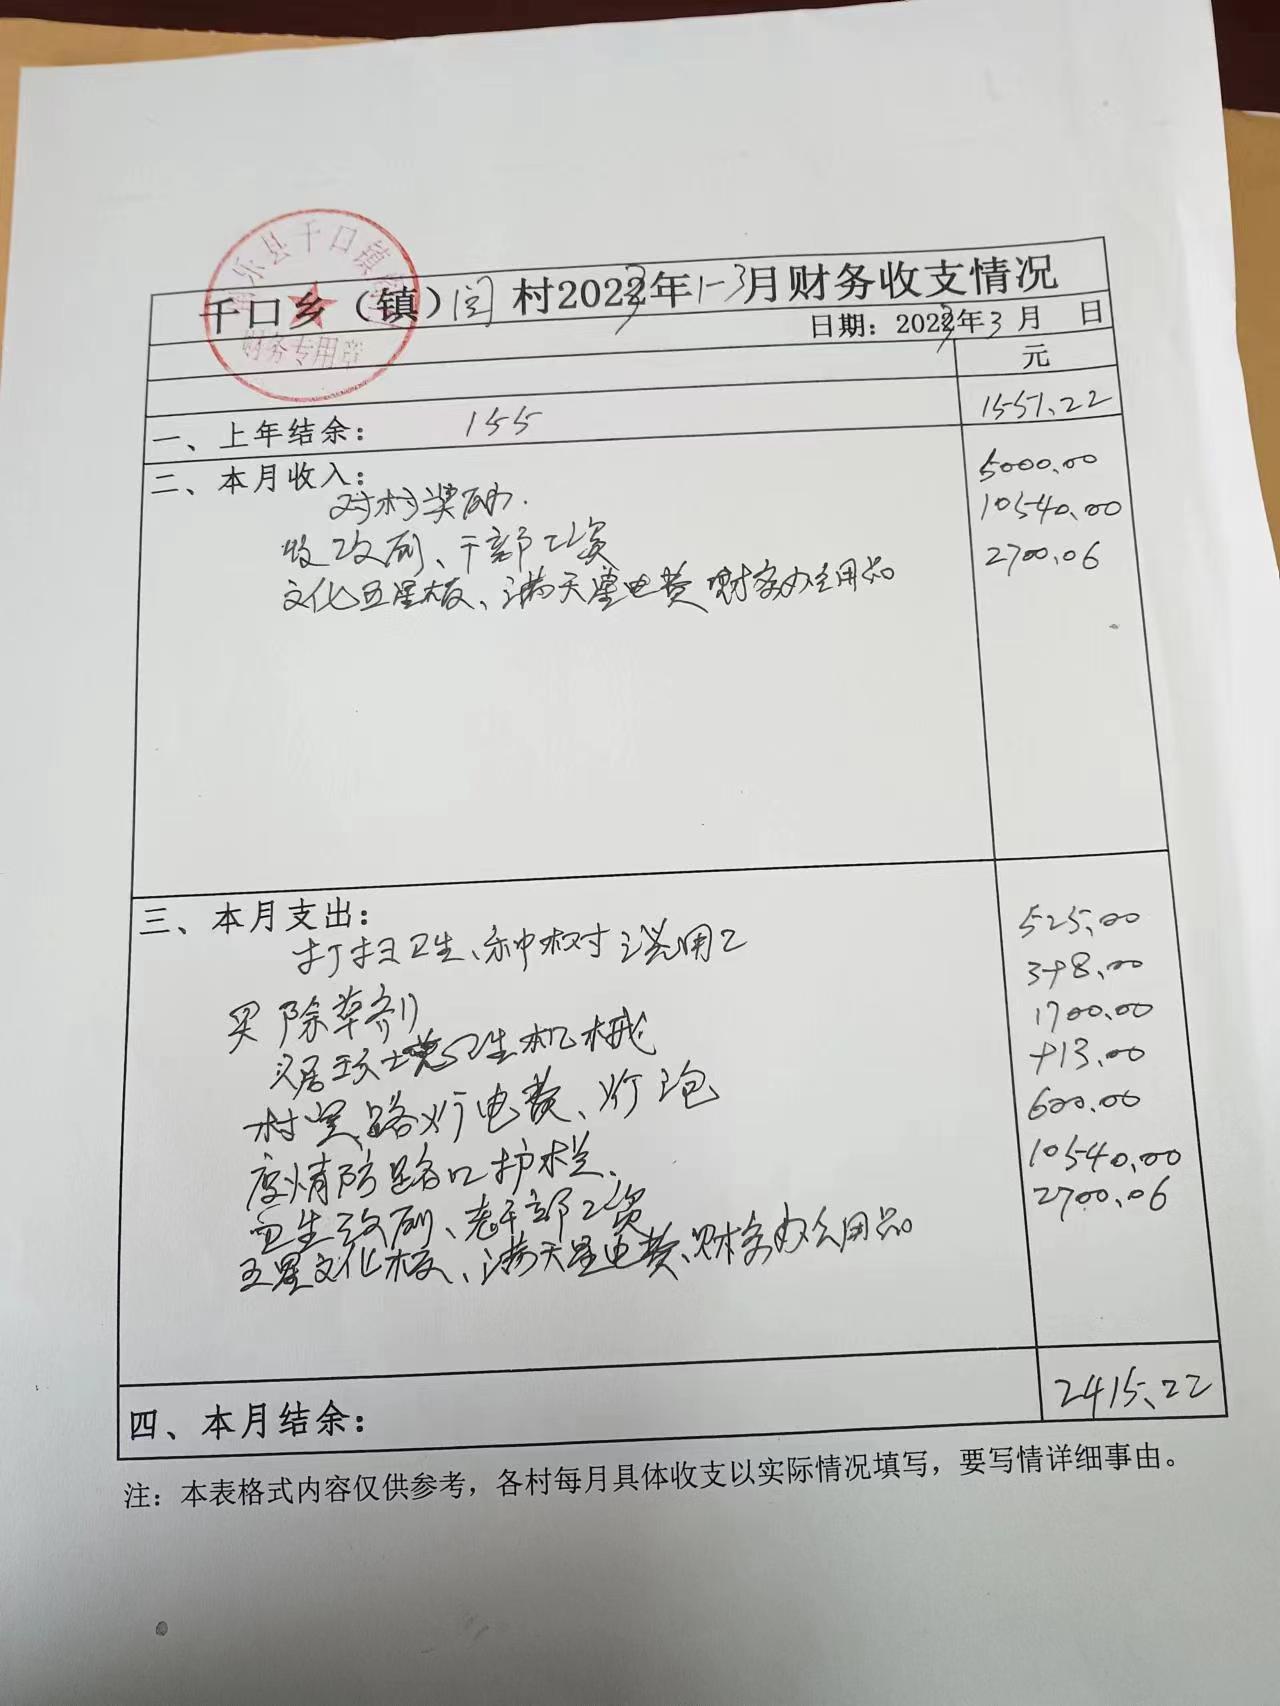 南乐县千口镇
财务专用章
千口乡（镇）闫村2023年1-3月财务收支情况
日期：2023年3月 日
元
一、上年结余： 155 1551.22
二、本月收入：
对村奖励. 5000.00
收 改厕、干部工资 10540.00
文化五星板、满天星电费 财务办公用品 2700.06
三、本月支出：
打扫卫生、种树 浇用工 525.00
买除草剂 398.00
卫生机械 1700.00
村室、路灯电费、灯泡 913.00
疫情防路口护栏、 600.00
卫生改厕、老干部工资 10540.00
五星文化板、满天星电费、财务办公用品 2700.06
四、本月结余： 2415.22
注：本表格式内容仅供参考，各村每月具体收支以实际情况填写，要写情详细事由。